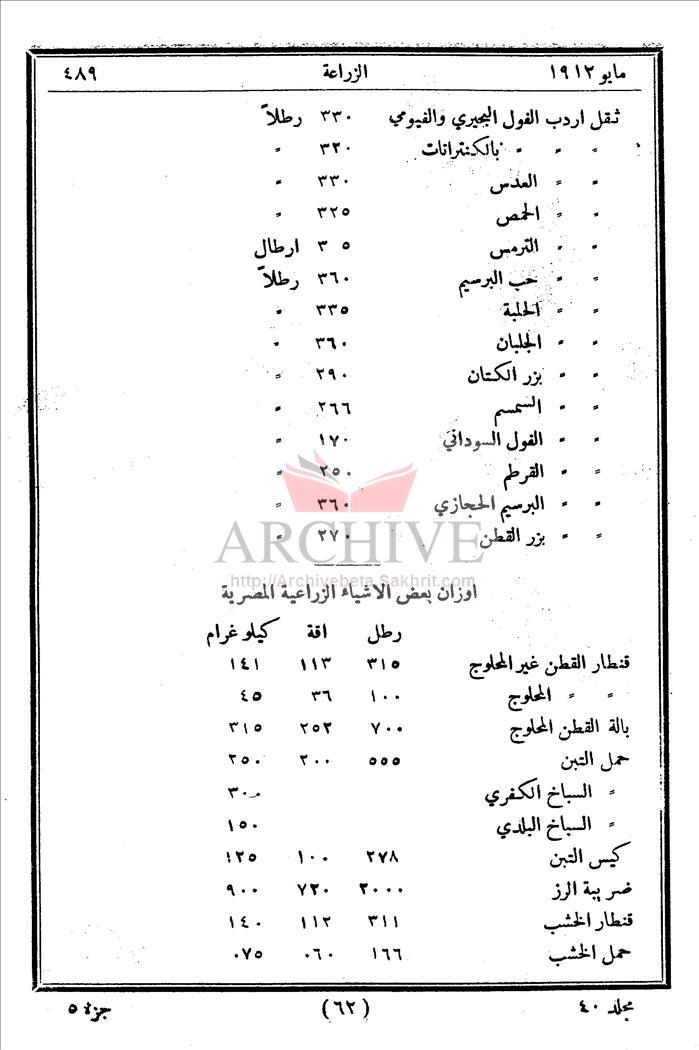 مايو ١٩١٢ الزراعة ٤٨٩
ثقل اردب الفول البحيري والفيومي ٣٣٠ رطلاً
" " " بالكنترانات ٣٢٠ "
" " العدس ٣٣٠ "
" " الحمص ٣٢٥ "
" " الترمس ٣ ٥ ارطال
" " حب البرسيم ٣٦٠ رطلاً
" " الحلبة ٣٣٥ "
" " الجلبان ٣٦٠ "
" " بزر الكتان ٢٩٠ "
" " السمسم ٢٦٦ "
" " الفول السوداني ١٧٠ "
" " القرطم ٢٥٠ "
" " البرسيم الحجازي ٣٦٠ "
" " بزر القطن ٢٧٠ "
ARCHIVE
http://Archivebeta.Sakhrit.com
اوزان بعض الاشياء الزراعية المصرية
رطل اقة كيلو غرام
قنطار القطن غير المحلوج ٣١٥ ١١٣ ١٤١
" " المحلوج ١٠٠ ٣٦ ٤٥
بالة القطن المحلوج ٧٠٠ ٢٥٢ ٣١٥
حمل التبن ٥٥٥ ٢٠٠ ٢٥٠
" السباخ الكفري ٣٠٠
" السباخ البلدي ١٥٠
كيس التبن ٢٧٨ ١٠٠ ١٢٥
ضريبة الرز ٢٠٠٠ ٧٢٠ ٩٠٠
قنطار الخشب ٣١١ ١١٢ ١٤٠
حمل الخشب ١٦٦ ٠٦٠ ٠٧٥
مجلد ٤٠ (٦٢) جزء ٥